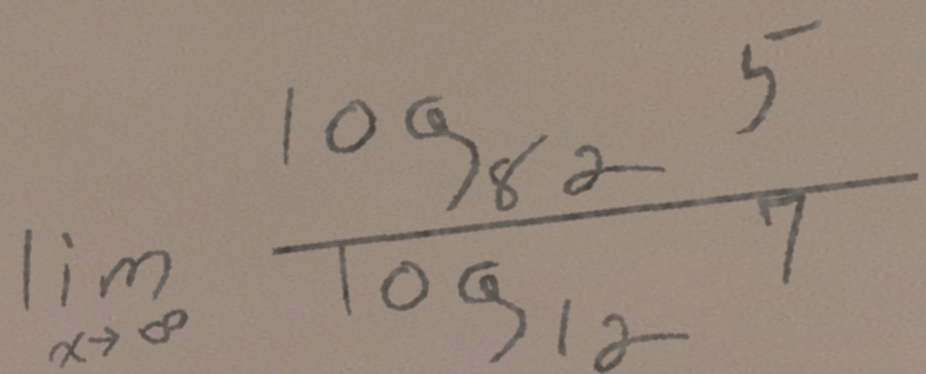 \lim_{x \to \infty} \frac{\log_{82} 5}{\log_{12} 7}